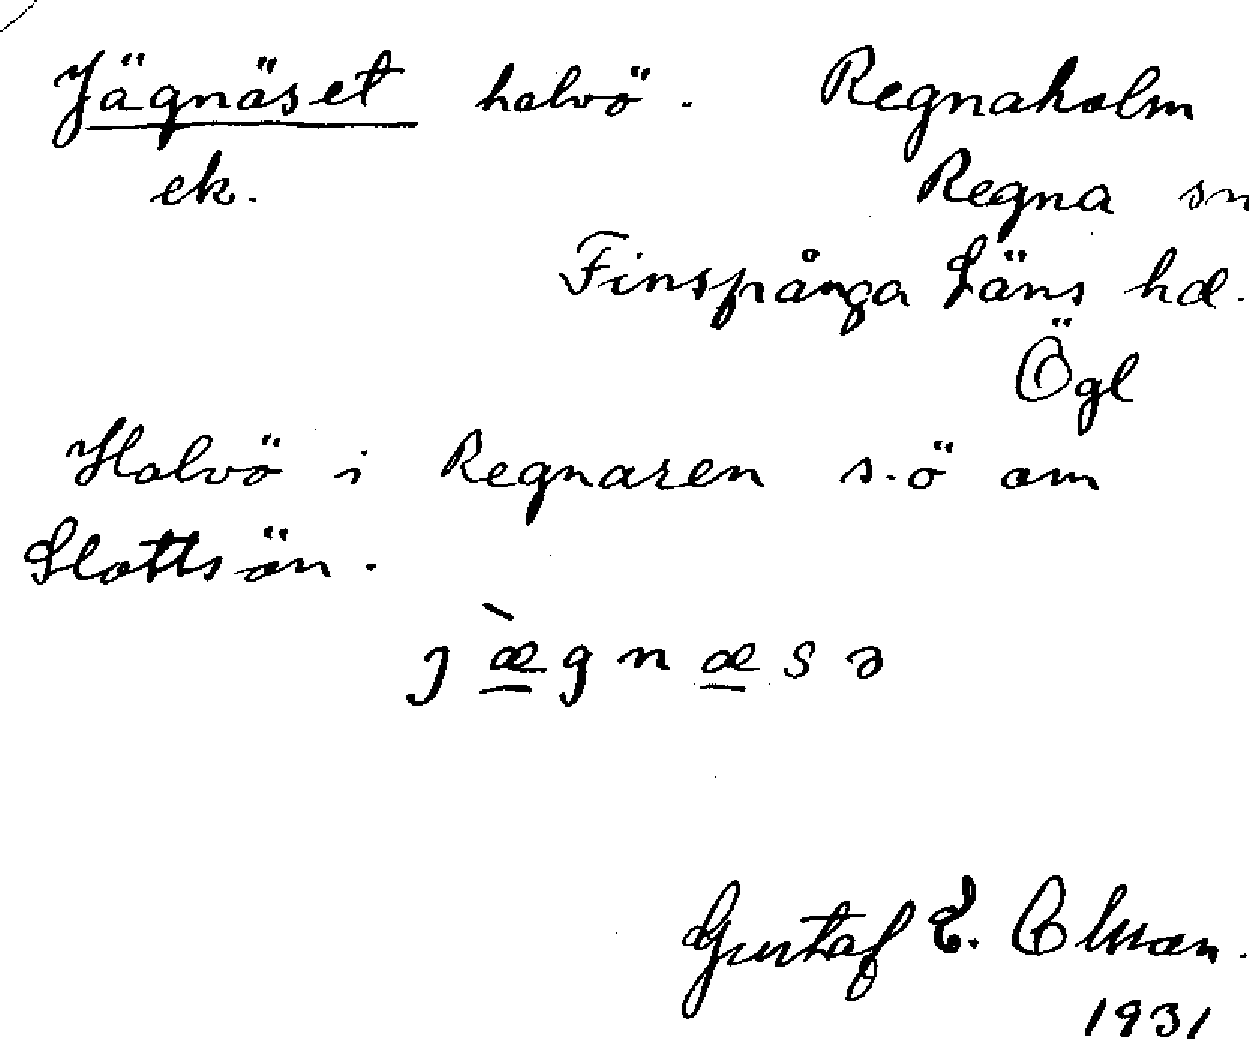 Jägnäset halvö. Regnaholm
ek. Regna sn
Finspånga Läns hd.
Ögl
Halvö i Regnaren s.ö om
Slottsön.
j æ̀ g n æ s ə
Gustaf E. Olsson.
1931